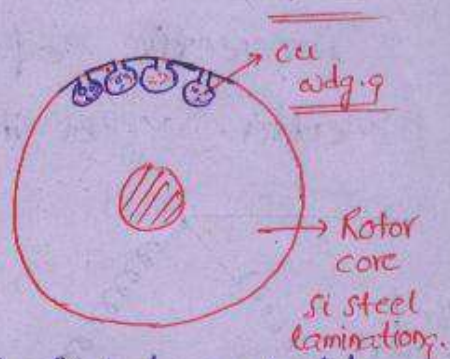 cu
wdg.g
Rotor
core
si steel
laminations.